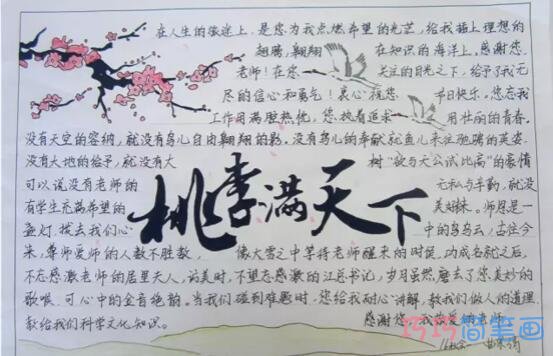 在人生的旅途上，是您为我点燃希望的光芒，给我插上理想的
翅膀，翱翔 在知识的海洋上，感谢您
老师！在您 关注的目光之下，给予了我无
尽的信心和勇气！衷心祝您 节日快乐，您忘我
工作用满腔热忱，您执着追求 用壮丽的青春
没有天空的容纳，就没有鸟儿自由翱翔的影，没有鸟的奉献就鱼儿来往弛骋的英姿
没有大地的给予，就没有大 树“欲与天公试比高”的豪情
可以说没有老师的 无私与辛勤，就没
有学生充满希望的 美好未来。师恩是一
盏灯，拨去我们心 中的乌云，古往今
来，尊师爱师的人数不胜数， 像大雪之中等待老师醒来的时候，功成名就之后，
不忘感激老师的居里夫人，尚美时，不望志感激的江总书记，岁月虽然磨去了您美妙的
歌喉，可心中的金音绝韵。当我们碰到难题时，您给我耐心讲解，教我们做人的道理，
教给我们科学文化知识。
感谢您，我敬爱的老师
桃李满天下
巧巧简笔画